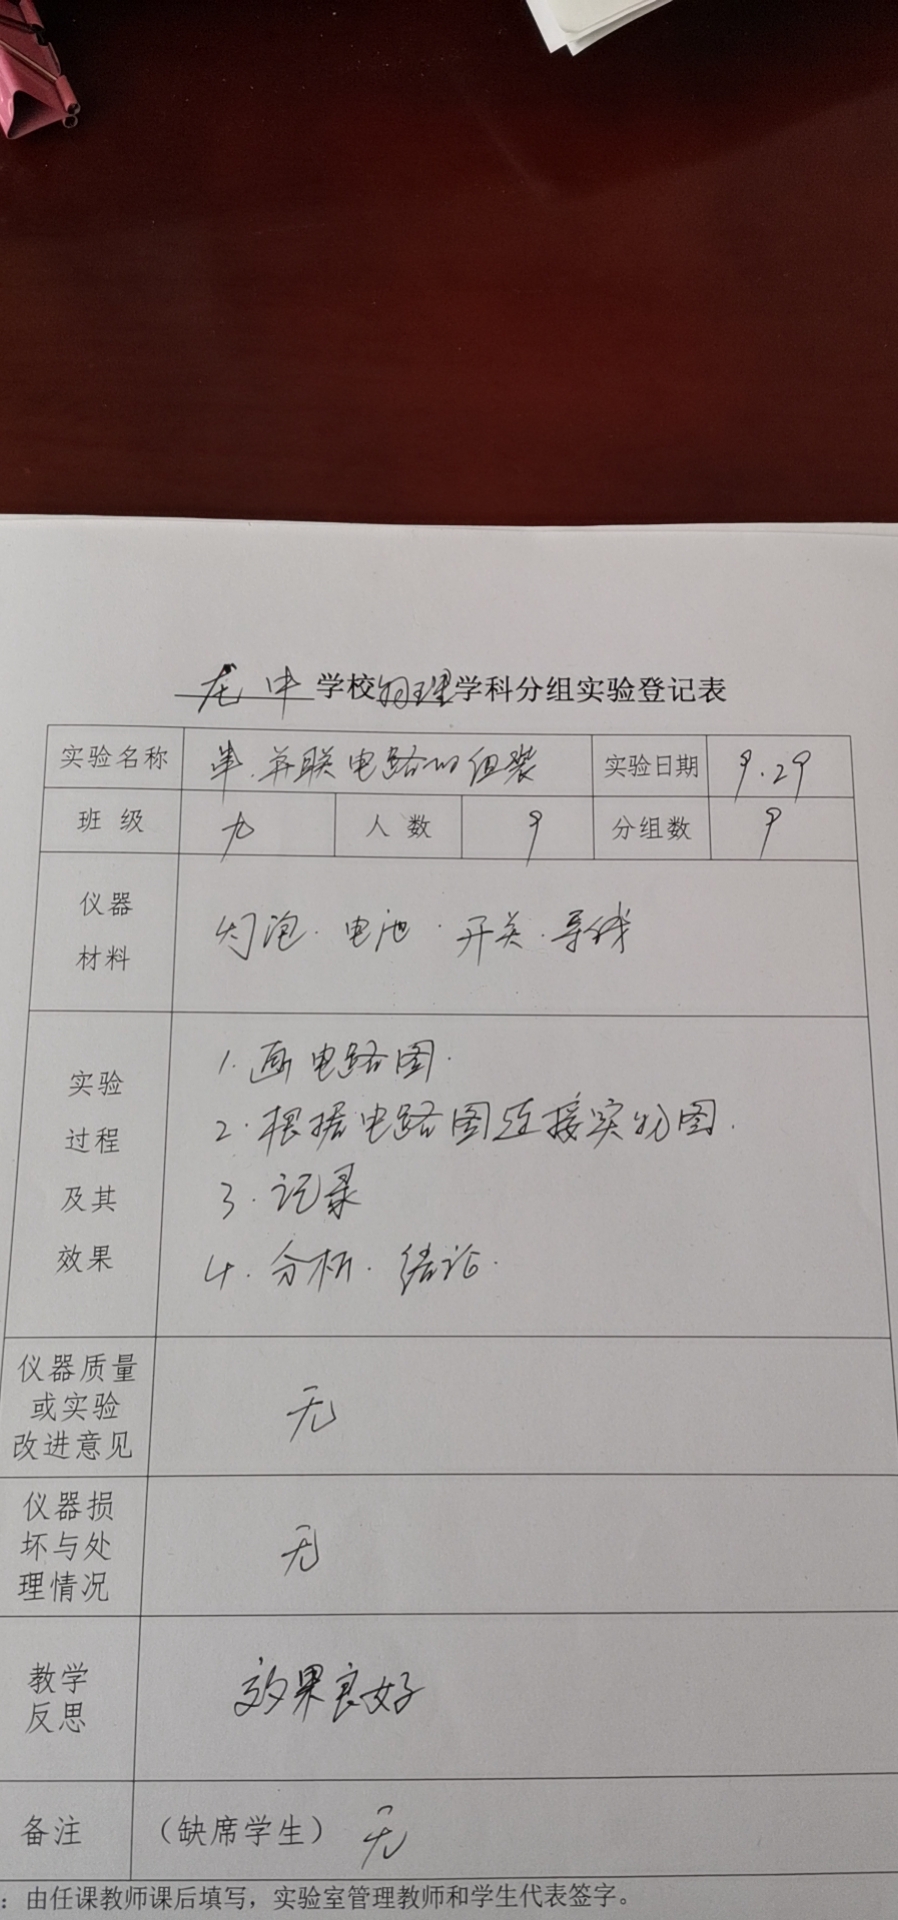 龙中学校物理学科分组实验登记表
实验名称 串.并联电路的组装 实验日期 9.29
班级 九 人数 9 分组数 9
仪器材料 灯泡.电池.开关.导线
实验过程及其效果
1.画电路图.
2.根据电路图连接实物图.
3.记录
4.分析.结论.
仪器质量或实验改进意见 无
仪器损坏与处理情况 无
教学反思 效果良好
备注 (缺席学生) 无
:由任课教师课后填写,实验室管理教师和学生代表签字。